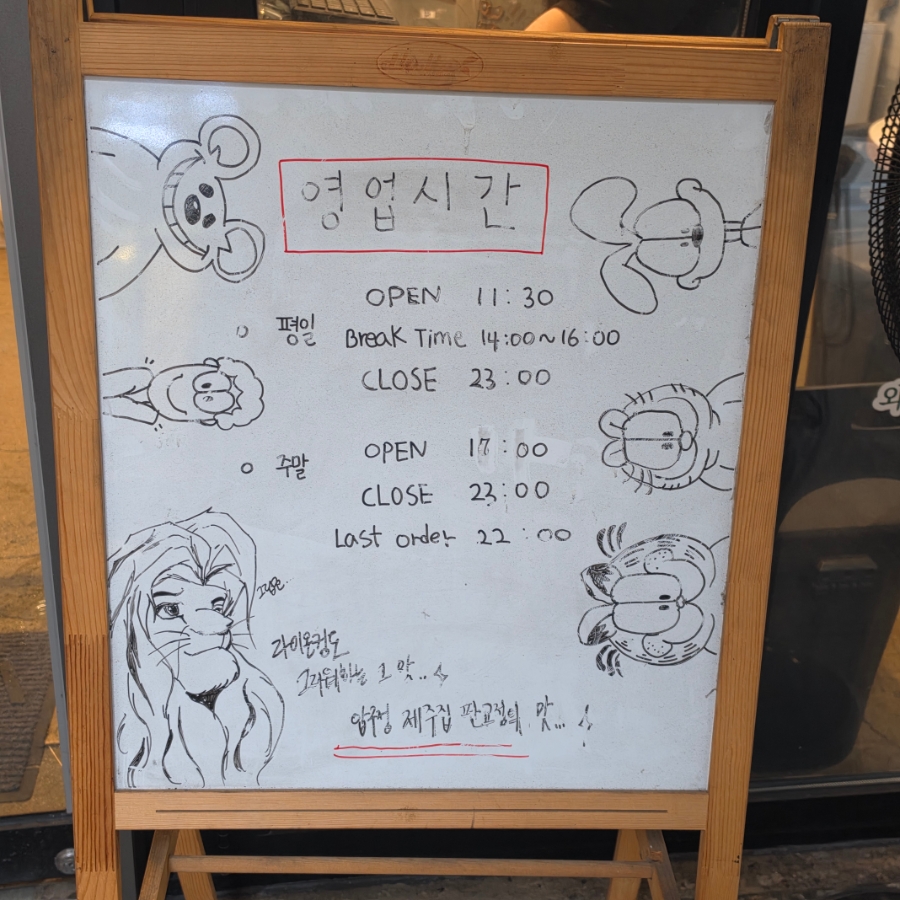 영업시간
평일
OPEN 11:30
Break Time 14:00~16:00
CLOSE 23:00
주말
OPEN 17:00
CLOSE 23:00
Last order 22:00
라이온킹도
그 맛..
압구정 제주집 판교점의 맛...